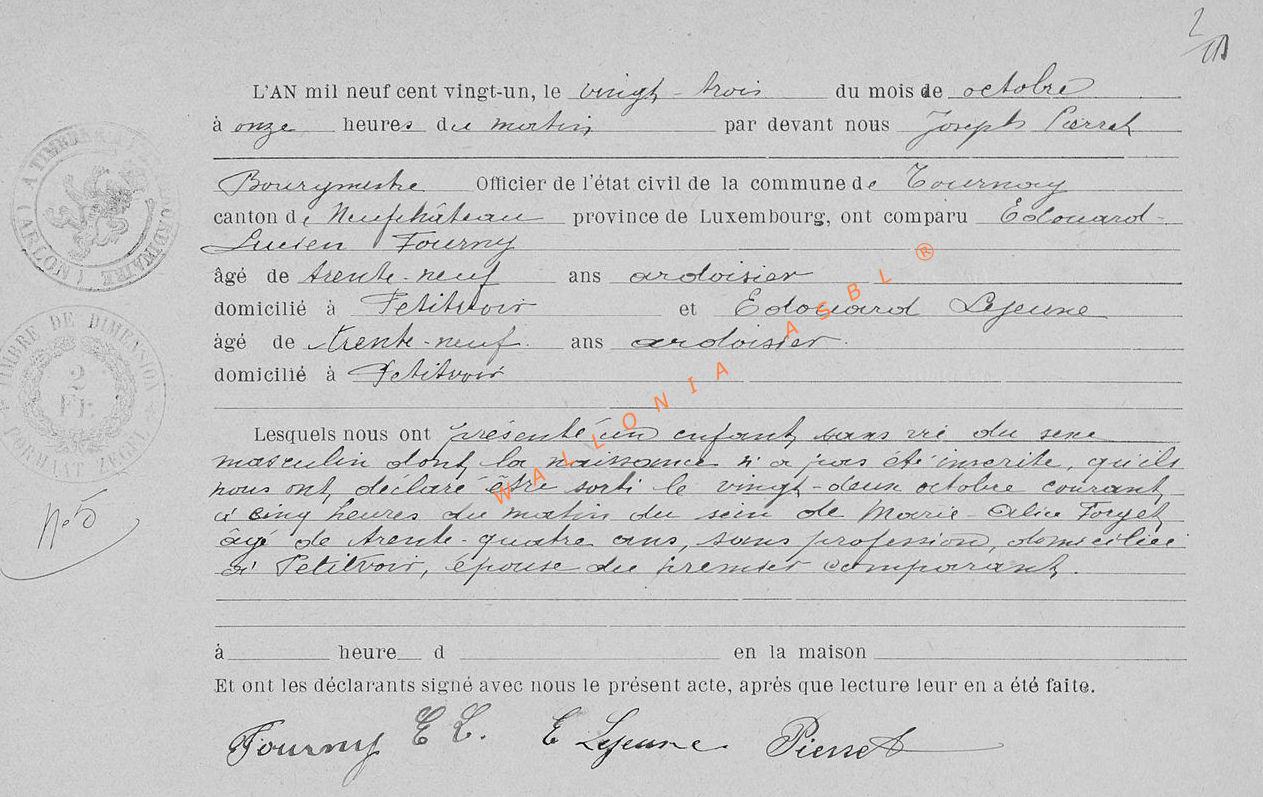 L'AN mil neuf cent vingt-un, le vingt-trois du mois de octobre
à onze heures du matin par devant nous Joseph Pierret
Bourgmestre Officier de l'état civil de la commune de Tournay
canton de Neufchâteau province de Luxembourg, ont comparu Edouard-
Lucien Fourny
âgé de trente-neuf ans ardoisier
domicilié à Petitvoir et Edouard Lejeune
âgé de trente-neuf ans ardoisier.
domicilié à Petitvoir
Lesquels nous ont présenté un enfant sans vie du sexe
masculin dont la naissance n'a pas été inscrite, qu'ils
nous ont déclaré être sorti le vingt-deux octobre courant
à cinq heures du matin du sein de Marie-Alice Forget
âgé de trente-quatre ans, sans profession, domiciliée
à Petitvoir, épouse du premier comparant.
à heure d en la maison
Et ont les déclarants signé avec nous le présent acte, après que lecture leur en a été faite.
Fourny E L. E Lejeune Pierret
No 5
TIMBRE DE DIMENSION
2
Fr.
FORMAAT ZEGEL
(ARLON)
WALLONIA ASBL ®